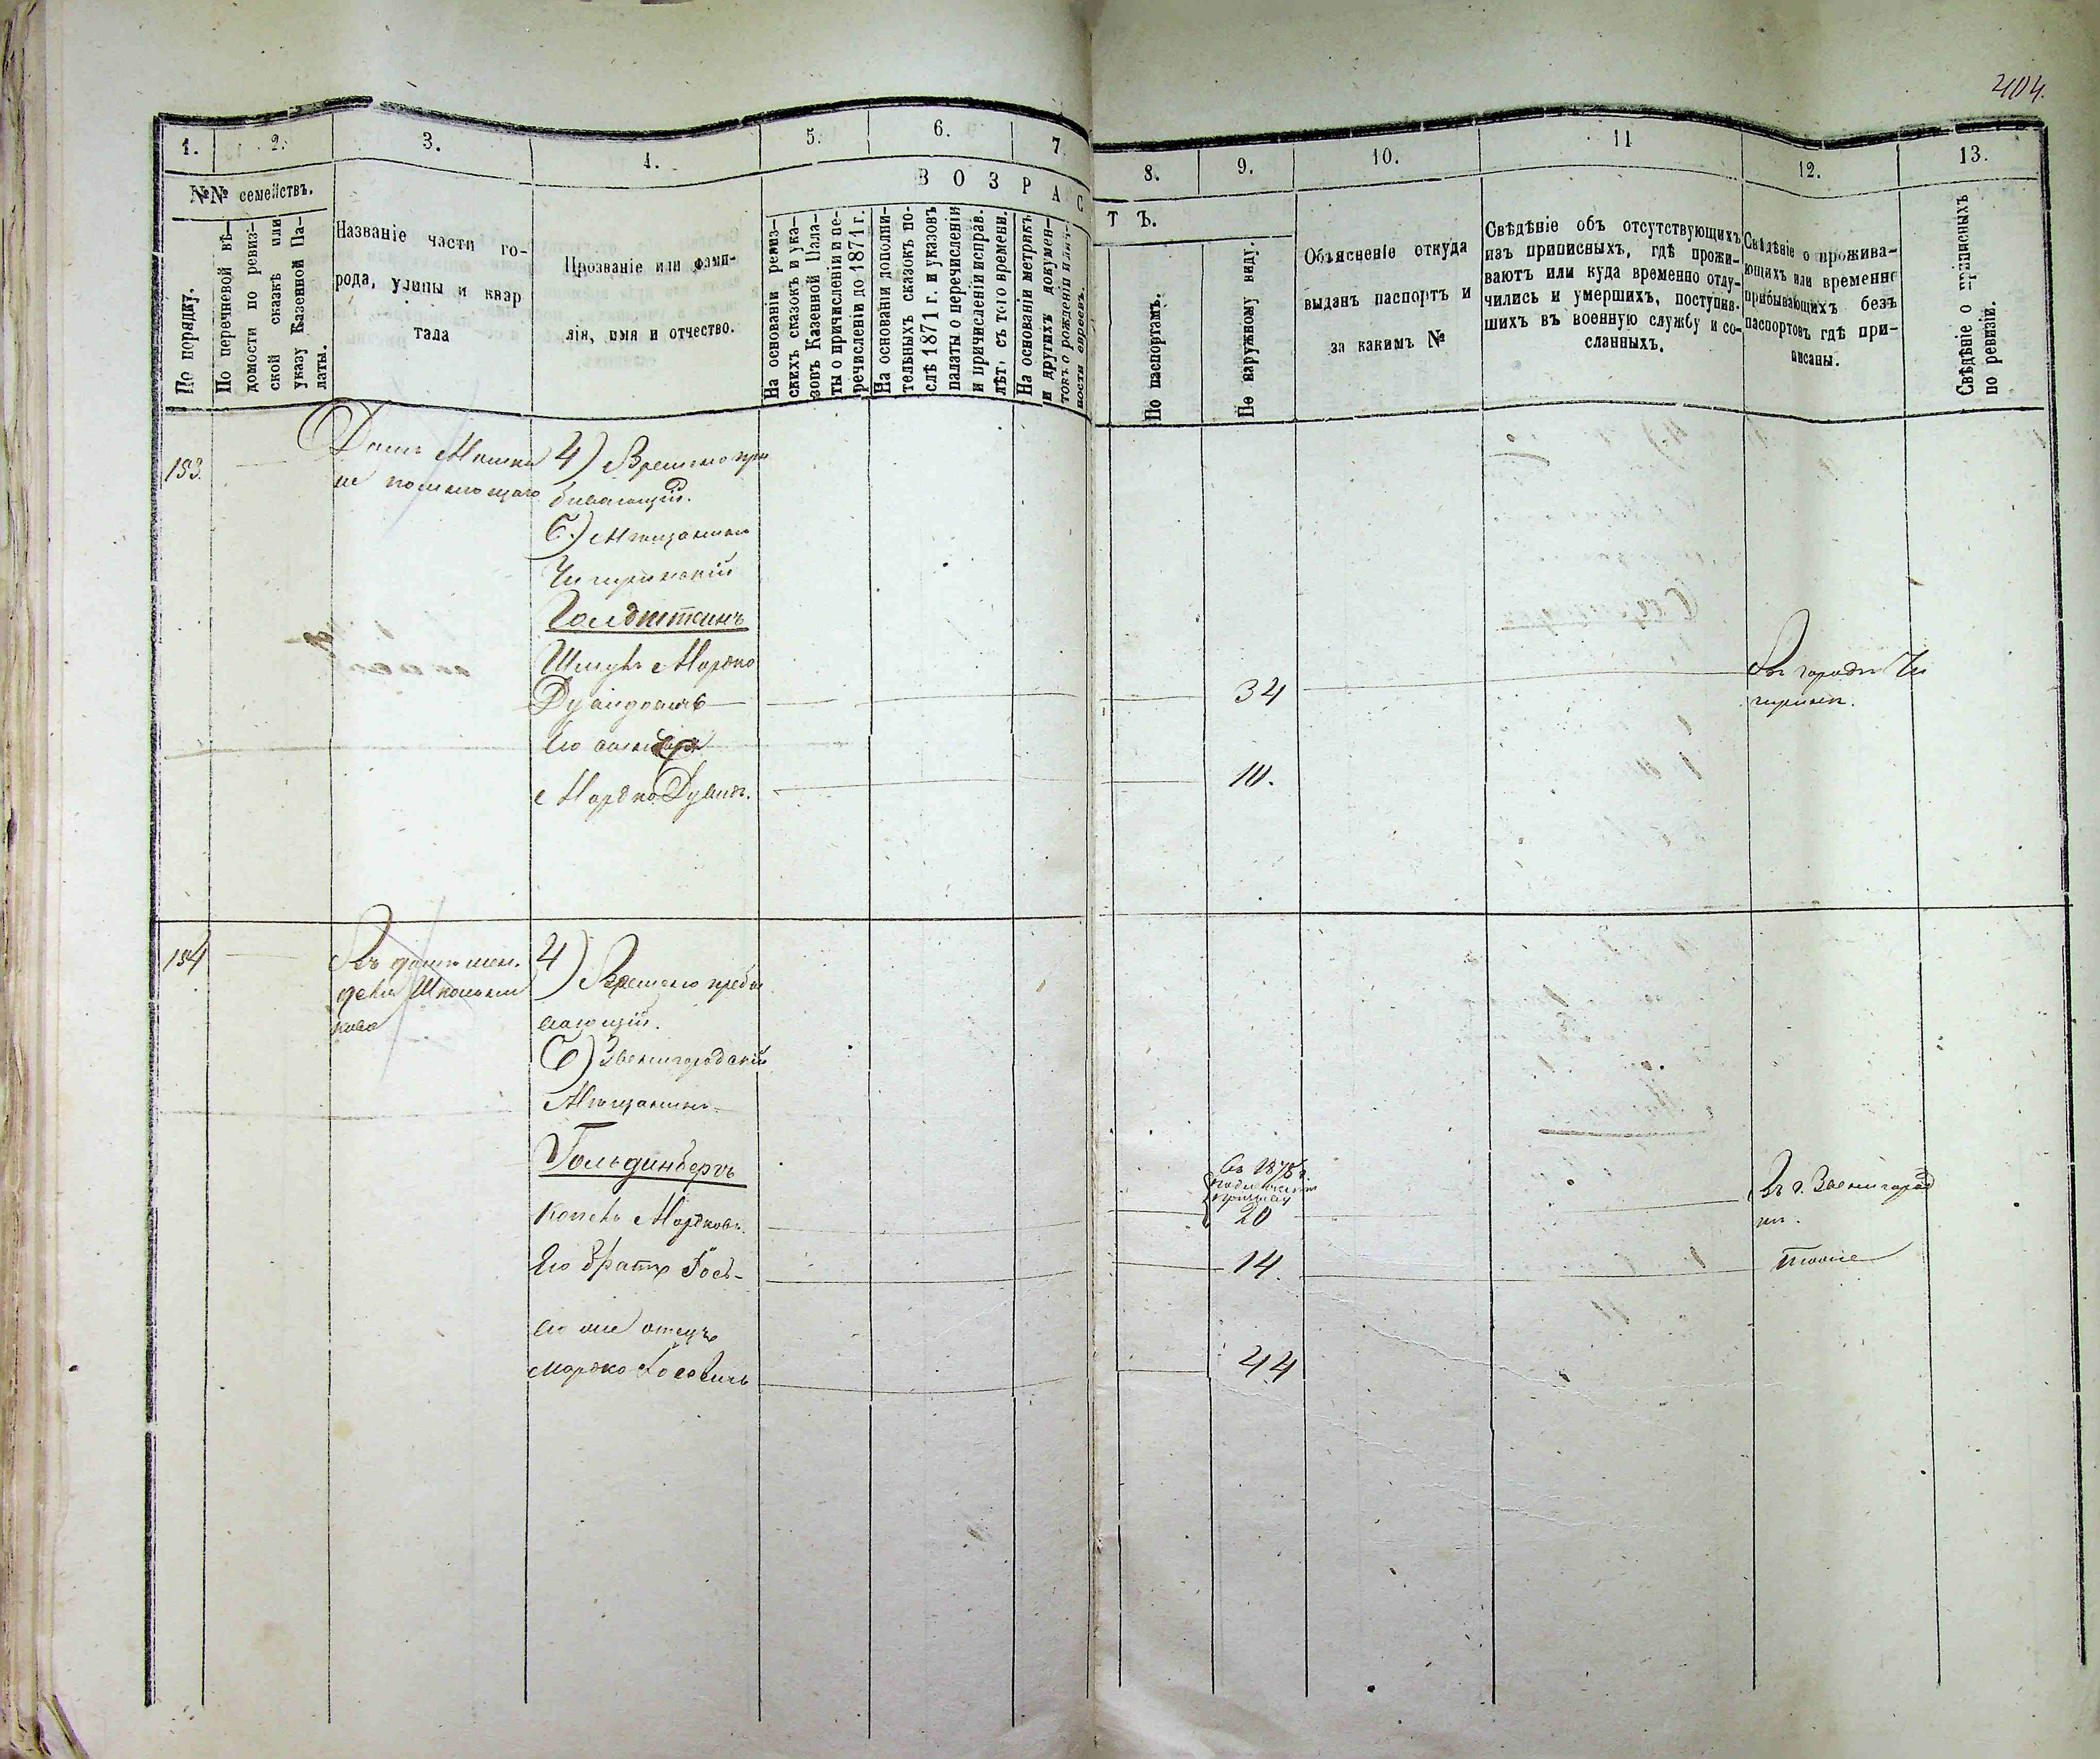 404.
1.
2.
3.
4.
5.
6.
7.
8.
9.
10.
11
12.
13.
№№ семействъ.
По порядку.
По перечневой вѣ-
домости по ревиз-
ской сказкѣ или
указу Казенной Па-
латы.
Названіе части го-
рода, улицы и квар
тала
Прозваніе или фами-
лія, имя и отчество.
В О З Р А С
Т Ъ.
На основаніи ревиз-
скихъ сказокъ и ука-
зовъ Казенной Пала-
ты о причисленіи и пе-
речисленіи до 1871 г.
На основаніи дополни-
тельныхъ сказокъ по-
слѣ 1871 г. и указовъ
палаты о перечисленіи
и причисленіи исправ.
лѣт. съ того времени.
На основаніи метрикъ
и другихъ докумен-
товъ о рожденіи и лич-
ности евреевъ.
По паспортамъ.
По наружному виду.
Объясненіе откуда
выданъ паспортъ и
за какимъ №
Свѣдѣніе объ отсутствующихъ
изъ приписныхъ, гдѣ прожи-
ваютъ или куда временно отлу-
чились и умершихъ, поступив-
шихъ въ военную службу и со-
сланныхъ.
Свѣдѣніе о прожива-
ющихъ или временно
прибывающихъ безъ
паспортовъ гдѣ при-
писаны.
Свѣдѣніе о приписныхъ
по ревизіи.
153.
Домъ
4) Временно пре
бывающій.
б) Мѣщанинъ
Чигиринскій
Голдштейнъ
Шмуль Мордко
34
Въ городѣ Чи
гиринѣ.
Его
Мордко
10.
154
Въ домѣ
4) Временно пребы
вающій.
б) Звенигородскій
Мѣщанинъ
Гольдинбергъ
Копель Мордков.
20
Въ г. Звенигород
кѣ.
Его братъ Іось-
14.
тоже
его же отецъ
Мордко Іосевичъ
44